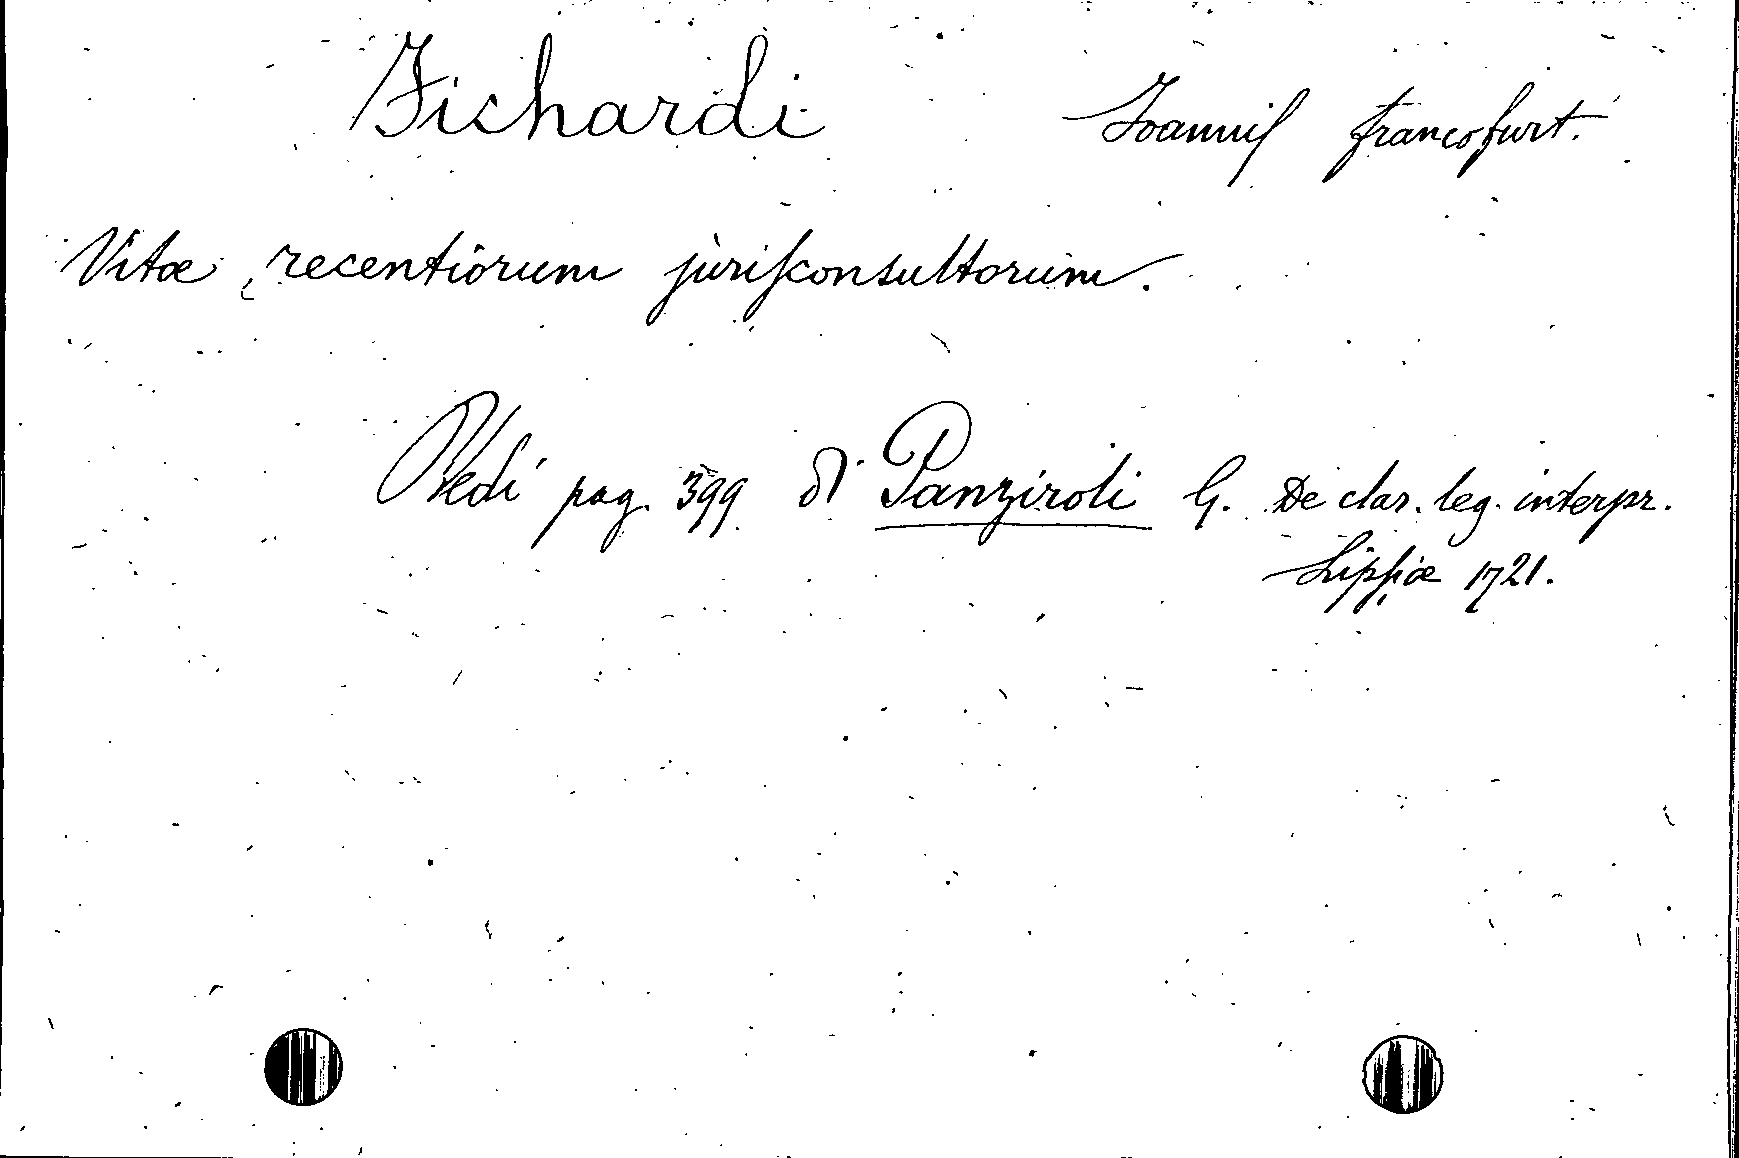 Fichardi Joanniſ francofurt.
Vitæ recentiorum juriſconsultorum.
Vedi pag. 399 di Panziroli G. De clar. leg. interpr.
Lipſiæ 1721.